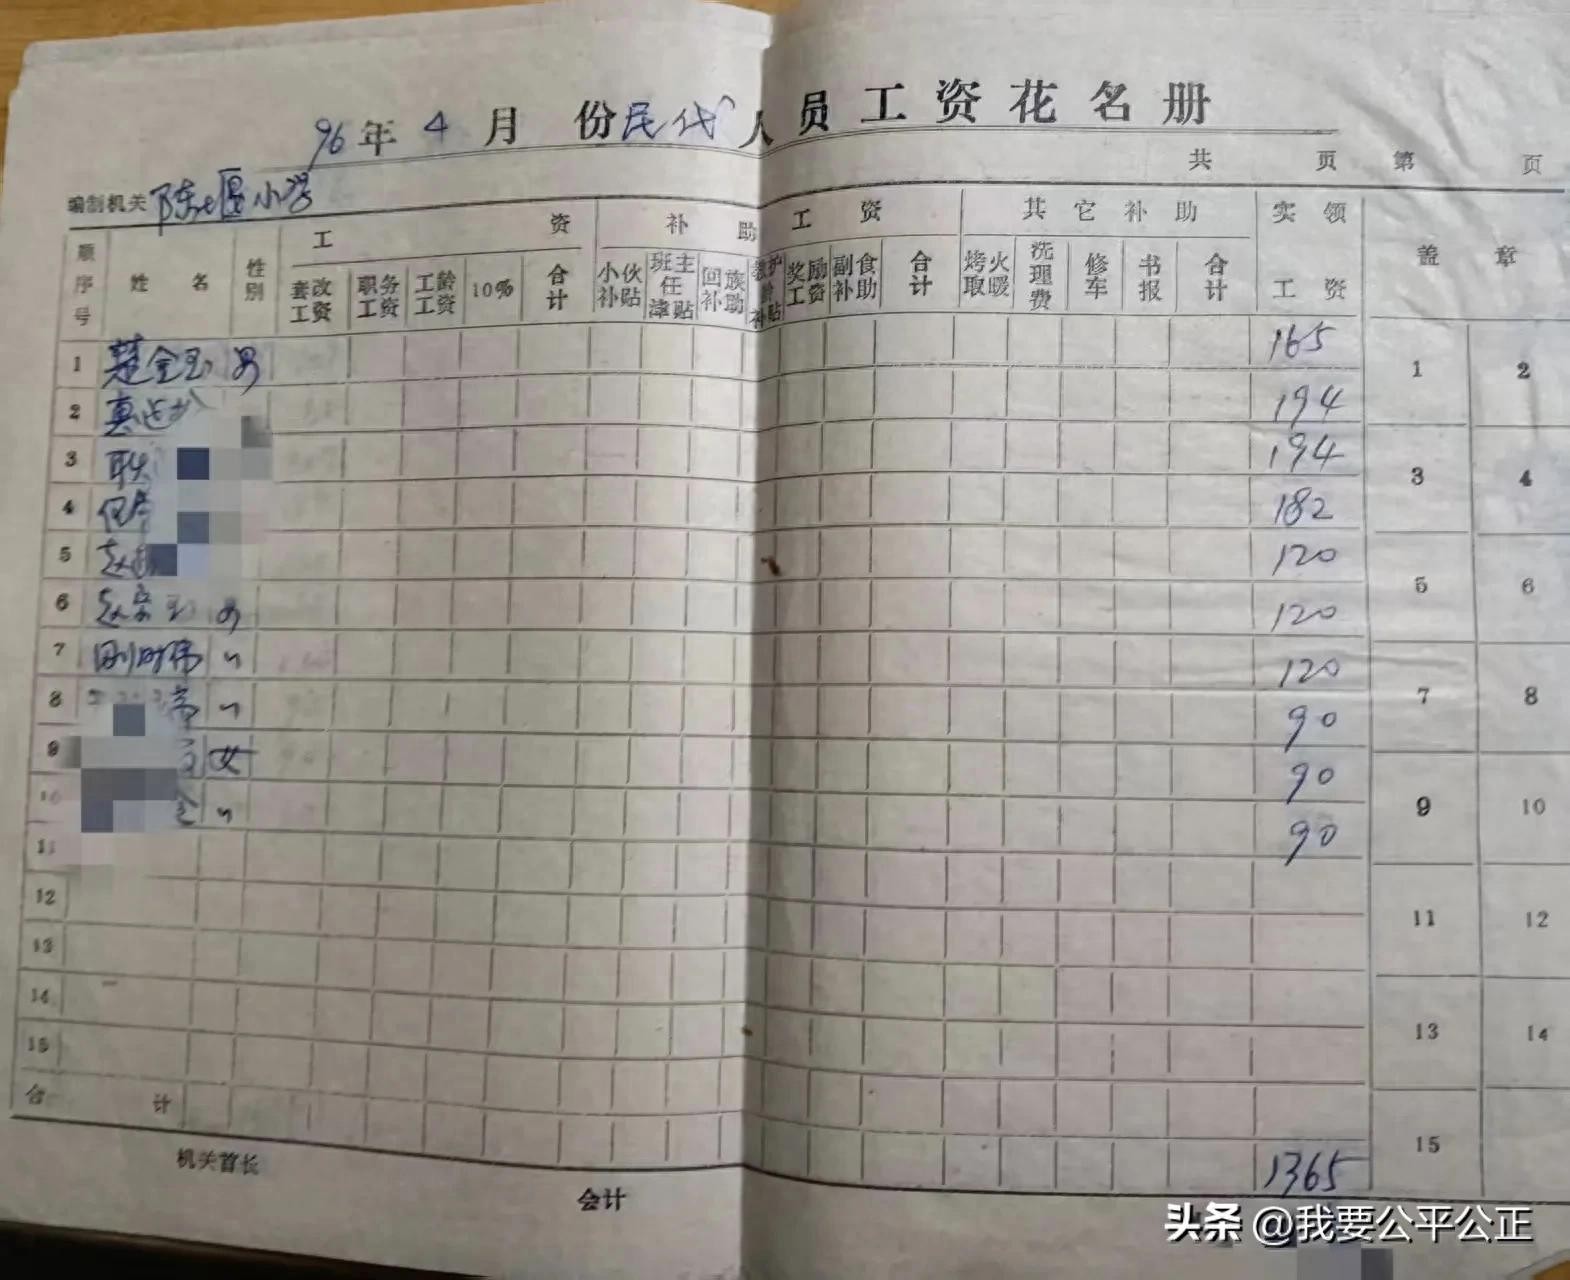 96年 4 月 份民代人员工资花名册
共 页 第 页
编制机关 小学
顺序号 姓 名 性别 工 资 补 助 工 资 其 它 补 助 实 领 工 资 盖 章
套改工资 职务工资 工龄工资 10% 合计 小伙补贴 班主任津贴 回族补助 教护龄补贴 奖励工资 副食补助 合计 烤火取暖 洗理费 修车 书报 合计
1 楚金玉 男 165 1 2
2 194
3 耿 194 3 4
4 182
5 赵 120 5 6
6 赵 玉 男 120
7 刚 伟 〃 120 7 8
8 〃 90
9 女 90 9 10
10 金 〃 90
11
12 11 12
13
14 13 14
15
合 计 1365 15
机关首长 会计
头条 @我要公平公正